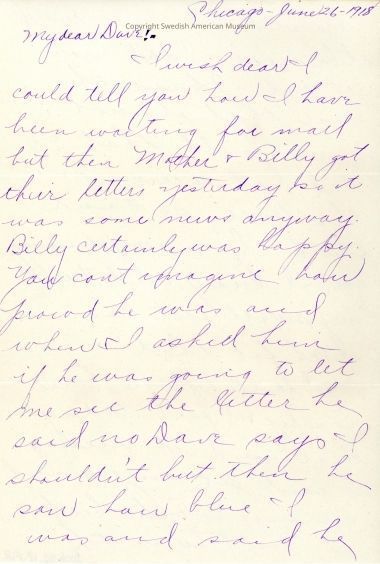 Chicago - June 26 - 1918
Copyright Swedish American Museum
My dear Dave!-
I wish dear I
could tell you how I have
been waiting for mail
but then Mother & Billy got
their letters yesterday so it
was some news anyway.
Billy certainly was happy.
You cant imagine how
prowd he was and
when I asked him
if he was going to let
me see the letter he
said no Dave says I
shouldn't but then he
saw how blue I
was and said he